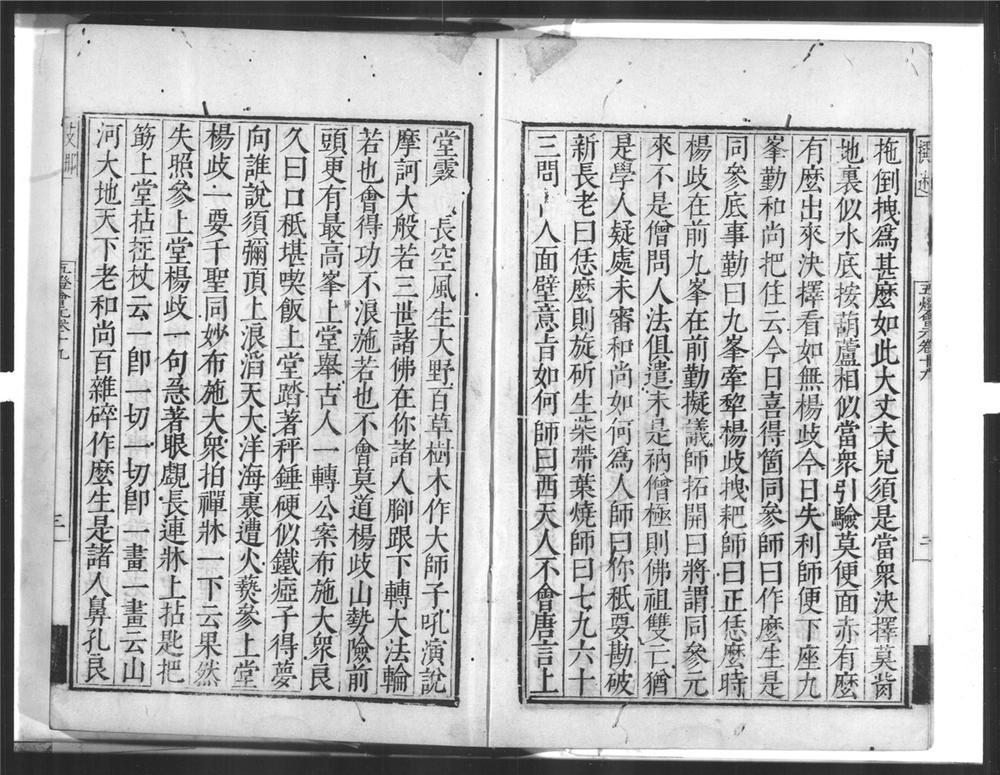 拖倒拽爲甚麼如此大丈夫兒須是當衆決擇莫背
地裏似水底按葫蘆相似當衆引驗莫便面赤有麼
有麼出來決擇看如無楊歧今日失利師便下座九
峯勤和尚把住云今日喜得箇同參師曰作麼生是
同參底事勤曰九峯牽犂楊歧拽耙師曰正恁麼時
楊歧在前九峯在前勤擬議師拓開曰將謂同參元
來不是僧問人法俱遣未是衲僧極則佛祖雙亡猶
是學人疑處未審和尚如何爲人師曰你秖要勘破
新長老曰恁麼則旋斫生柴帶葉燒師曰七九六十
三問 人面壁意旨如何師曰西天人不會唐言上
堂霧 長空風生大野百草樹木作大師子吼演說
摩訶大般若三世諸佛在你諸人腳跟下轉大法輪
若也會得功不浪施若也不會莫道楊歧山勢險前
頭更有最高峯上堂舉古人一轉公案布施大衆良
久曰口秖堪喫飯上堂踏著秤錘硬似鐵瘂子得夢
向誰說須彌頂上浪滔天大洋海裏遭火爇參上堂
楊歧一要千聖同妙布施大衆拍禪牀一下云果然
失照參上堂楊歧一句急著眼覷長連牀上拈匙把
筯上堂拈拄杖云一卽一切一切卽一畫一畫云山
河大地天下老和尚百雜碎作麼生是諸人鼻孔良
五燈會元卷十九
二
五燈會元卷十九
三